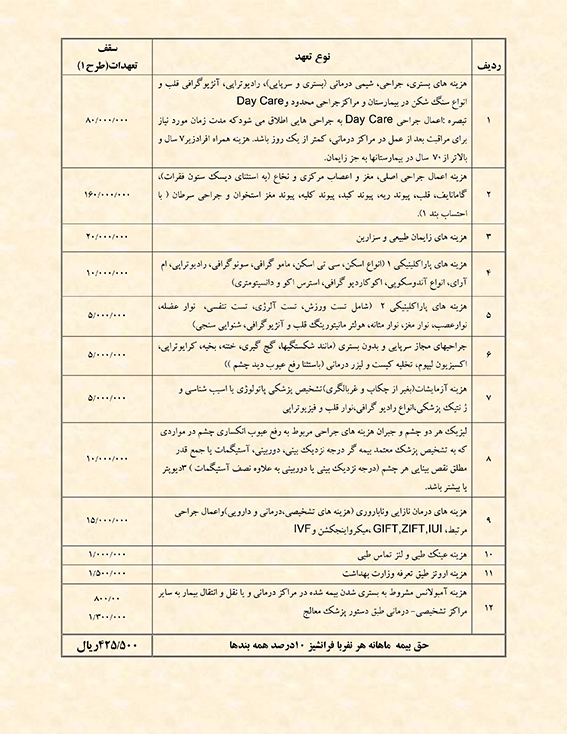 ردیف	نوع تعهد	سقف
تعهدات(طرح۱)
۱	هزینه های بستری، جراحی، شیمی درمانی (بستری و سرپایی)، رادیوتراپی، آنژیوگرافی قلب و	۸۰/۰۰۰/۰۰۰
انواع سنگ شکن در بیمارستان و مراکزجراحی محدود وDay Care
تبصره :اعمال جراحی Day Care به جراحی هایی اطلاق می شودکه مدت زمان مورد نیاز
برای مراقبت بعد از عمل در مراکز درمانی، کمتر از یک روز باشد. هزینه همراه افرادزیر۷ سال و
بالاتر از ۷۰ سال در بیمارستانها به جز زایمان.
۲	هزینه اعمال جراحی اصلی، مغز و اعصاب مرکزی و نخاع (به استثنای دیسک ستون فقرات)،	۱۶۰/۰۰۰/۰۰۰
گامانایف، قلب، پیوند ریه، پیوند کبد، پیوند کلیه، پیوند مغز استخوان و جراحی سرطان ( با
احتساب بند ۱).
۳	هزینه های زایمان طبیعی و سزارین	۲۰/۰۰۰/۰۰۰
۴	هزینه های پاراکلینیکی ۱ (انواع اسکن، سی تی اسکن، مامو گرافی، سونوگرافی، رادیوتراپی، ام	۱۰/۰۰۰/۰۰۰
آرآی، انواع آندوسکوپی، اکوکاردیو گرافی، استرس اکو و دانسیتومتری)
۵	هزینه های پاراکلینیکی ۲ (شامل تست ورزش، تست آلرژی، تست تنفسی، نوار عضله،	۵/۰۰۰/۰۰۰
نوارعصب، نوار مغز، نوار مثانه، هولتر مانیتورینگ قلب و آنژیوگرافی، شنوایی سنجی)
۶	جراحیهای مجاز سرپایی و بدون بستری (مانند شکستگیها، گچ گیری، ختنه، بخیه، کرایوتراپی،	۵/۰۰۰/۰۰۰
اکسیزیون لیپوم، تخلیه کیست و لیزر درمانی (باستثنا رفع عیوب دید چشم ))
۷	هزینه آزمایشات(بغیر از چکاپ و غربالگری)تشخیص پزشکی پاتولوژی یا اسیب شناسی و	۵/۰۰۰/۰۰۰
ژ نتیک پزشکی،انواع رادیو گرافی،نوار قلب و فیزیوتراپی
۸	لیزیک هر دو چشم و جبران هزینه های جراحی مربوط به رفع عیوب انکساری چشم در مواردی	۱۰/۰۰۰/۰۰۰
که به تشخیص پزشک معتمد بیمه گر درجه نزدیک بینی، دوربینی، آستیگمات یا جمع قدر
مطلق نقص بینایی هر چشم (درجه نزدیک بینی یا دوربینی به علاوه نصف آستیگمات ) ۳دیوپتر
یا بیشتر باشد.
۹	هزینه های درمان نازایی وناباروری (هزینه های تشخیصی،درمانی و دارویی)واعمال جراحی	۱۵/۰۰۰/۰۰۰
مرتبط، GIFT,ZIFT,IUI ،میکرواینجکشن وIVF
۱۰	هزینه عینک طبی و لنز تماس طبی	۱/۰۰۰/۰۰۰
۱۱	هزینه اروتز طبق تعرفه وزارت بهداشت	۱/۵۰۰/۰۰۰
۱۲	هزینه آمبولانس مشروط به بستری شدن بیمه شده در مراکز درمانی و یا نقل و انتقال بیمار به سایر	۸۰۰/۰۰
مراکز تشخیصی- درمانی طبق دستور پزشک معالج	۱/۳۰۰/۰۰۰
حق بیمه ماهانه هر نفربا فرانشیز ۱۰درصد همه بندها	۴۲۵/۵۰۰ریال